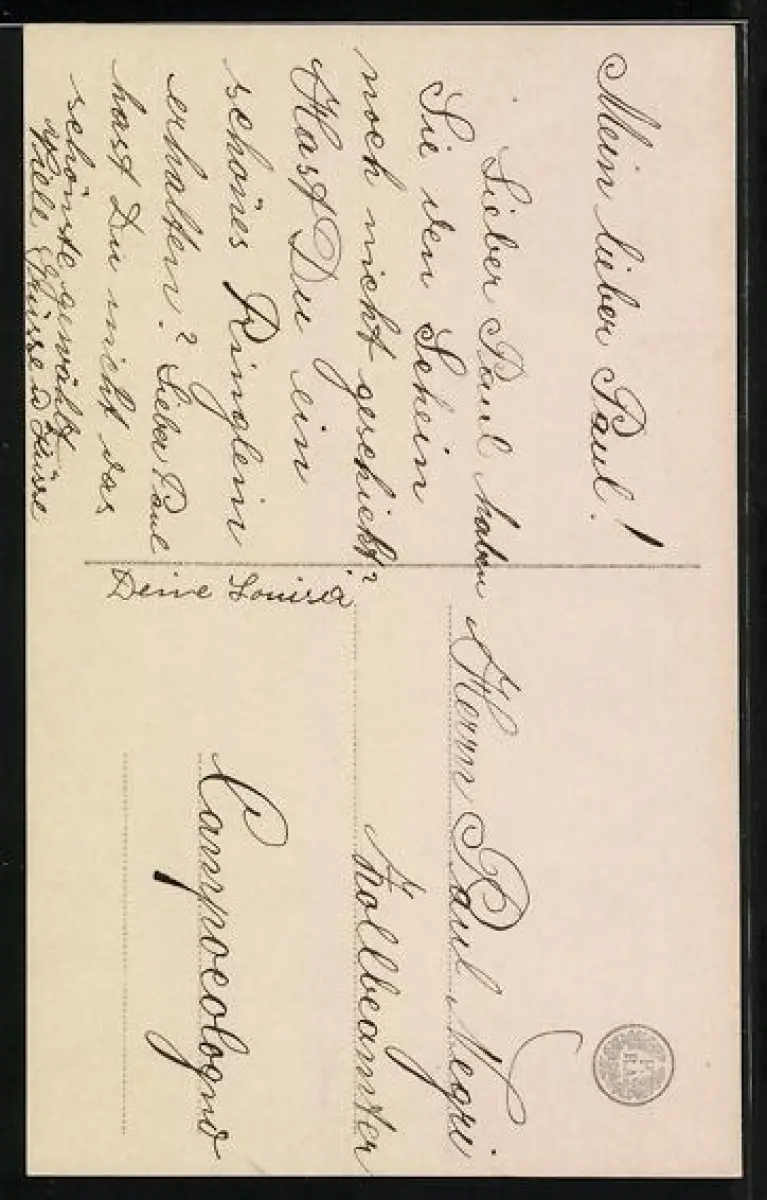 Mein lieber Paul!
Lieber Paul haben
Sie den Schein
noch nicht geschickt?
Hast Du ein
schönes Ringlein
erhalten? Lieber Paul
hast Du nicht das
schönste gewählt
Viele Grüsse u Küsse
Deine Louisa
Herrn Paul Negri
Zollbeamter
Campocologno